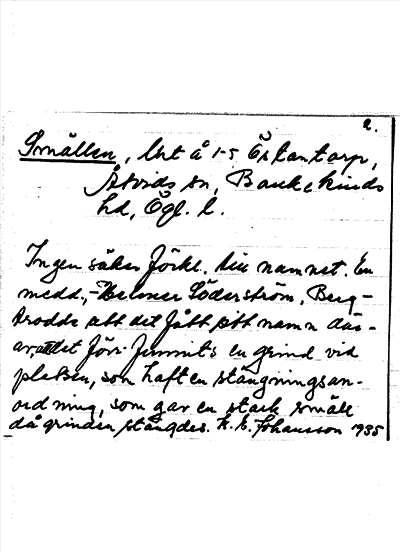 2.
Smällen, lht å 1-5 Östantorp,
Åtvids sn, Bankekinds
hd, Ögl. l.
Ingen säker förkl. till namnet. En
medd., - Helmer Söderström, Berg-
trodde att det fått sitt namn där-
av, att det förr funnits en grind vid
platsen, som haft en stängningsan-
ordning, som gav en stark smäll
då grinden stängdes. K. E. Johansson 1935